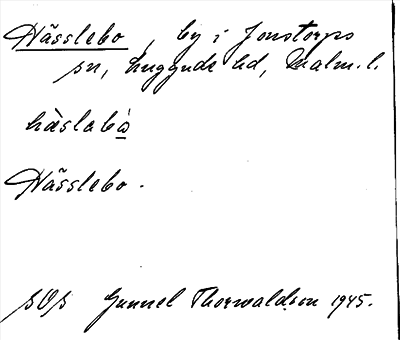 Hässlebo, by i Jonstorps
sn, Luggude hd, Malm. l.
hàslabò
Hässlebo.
SOS Gunnel Thorwaldson 1945.